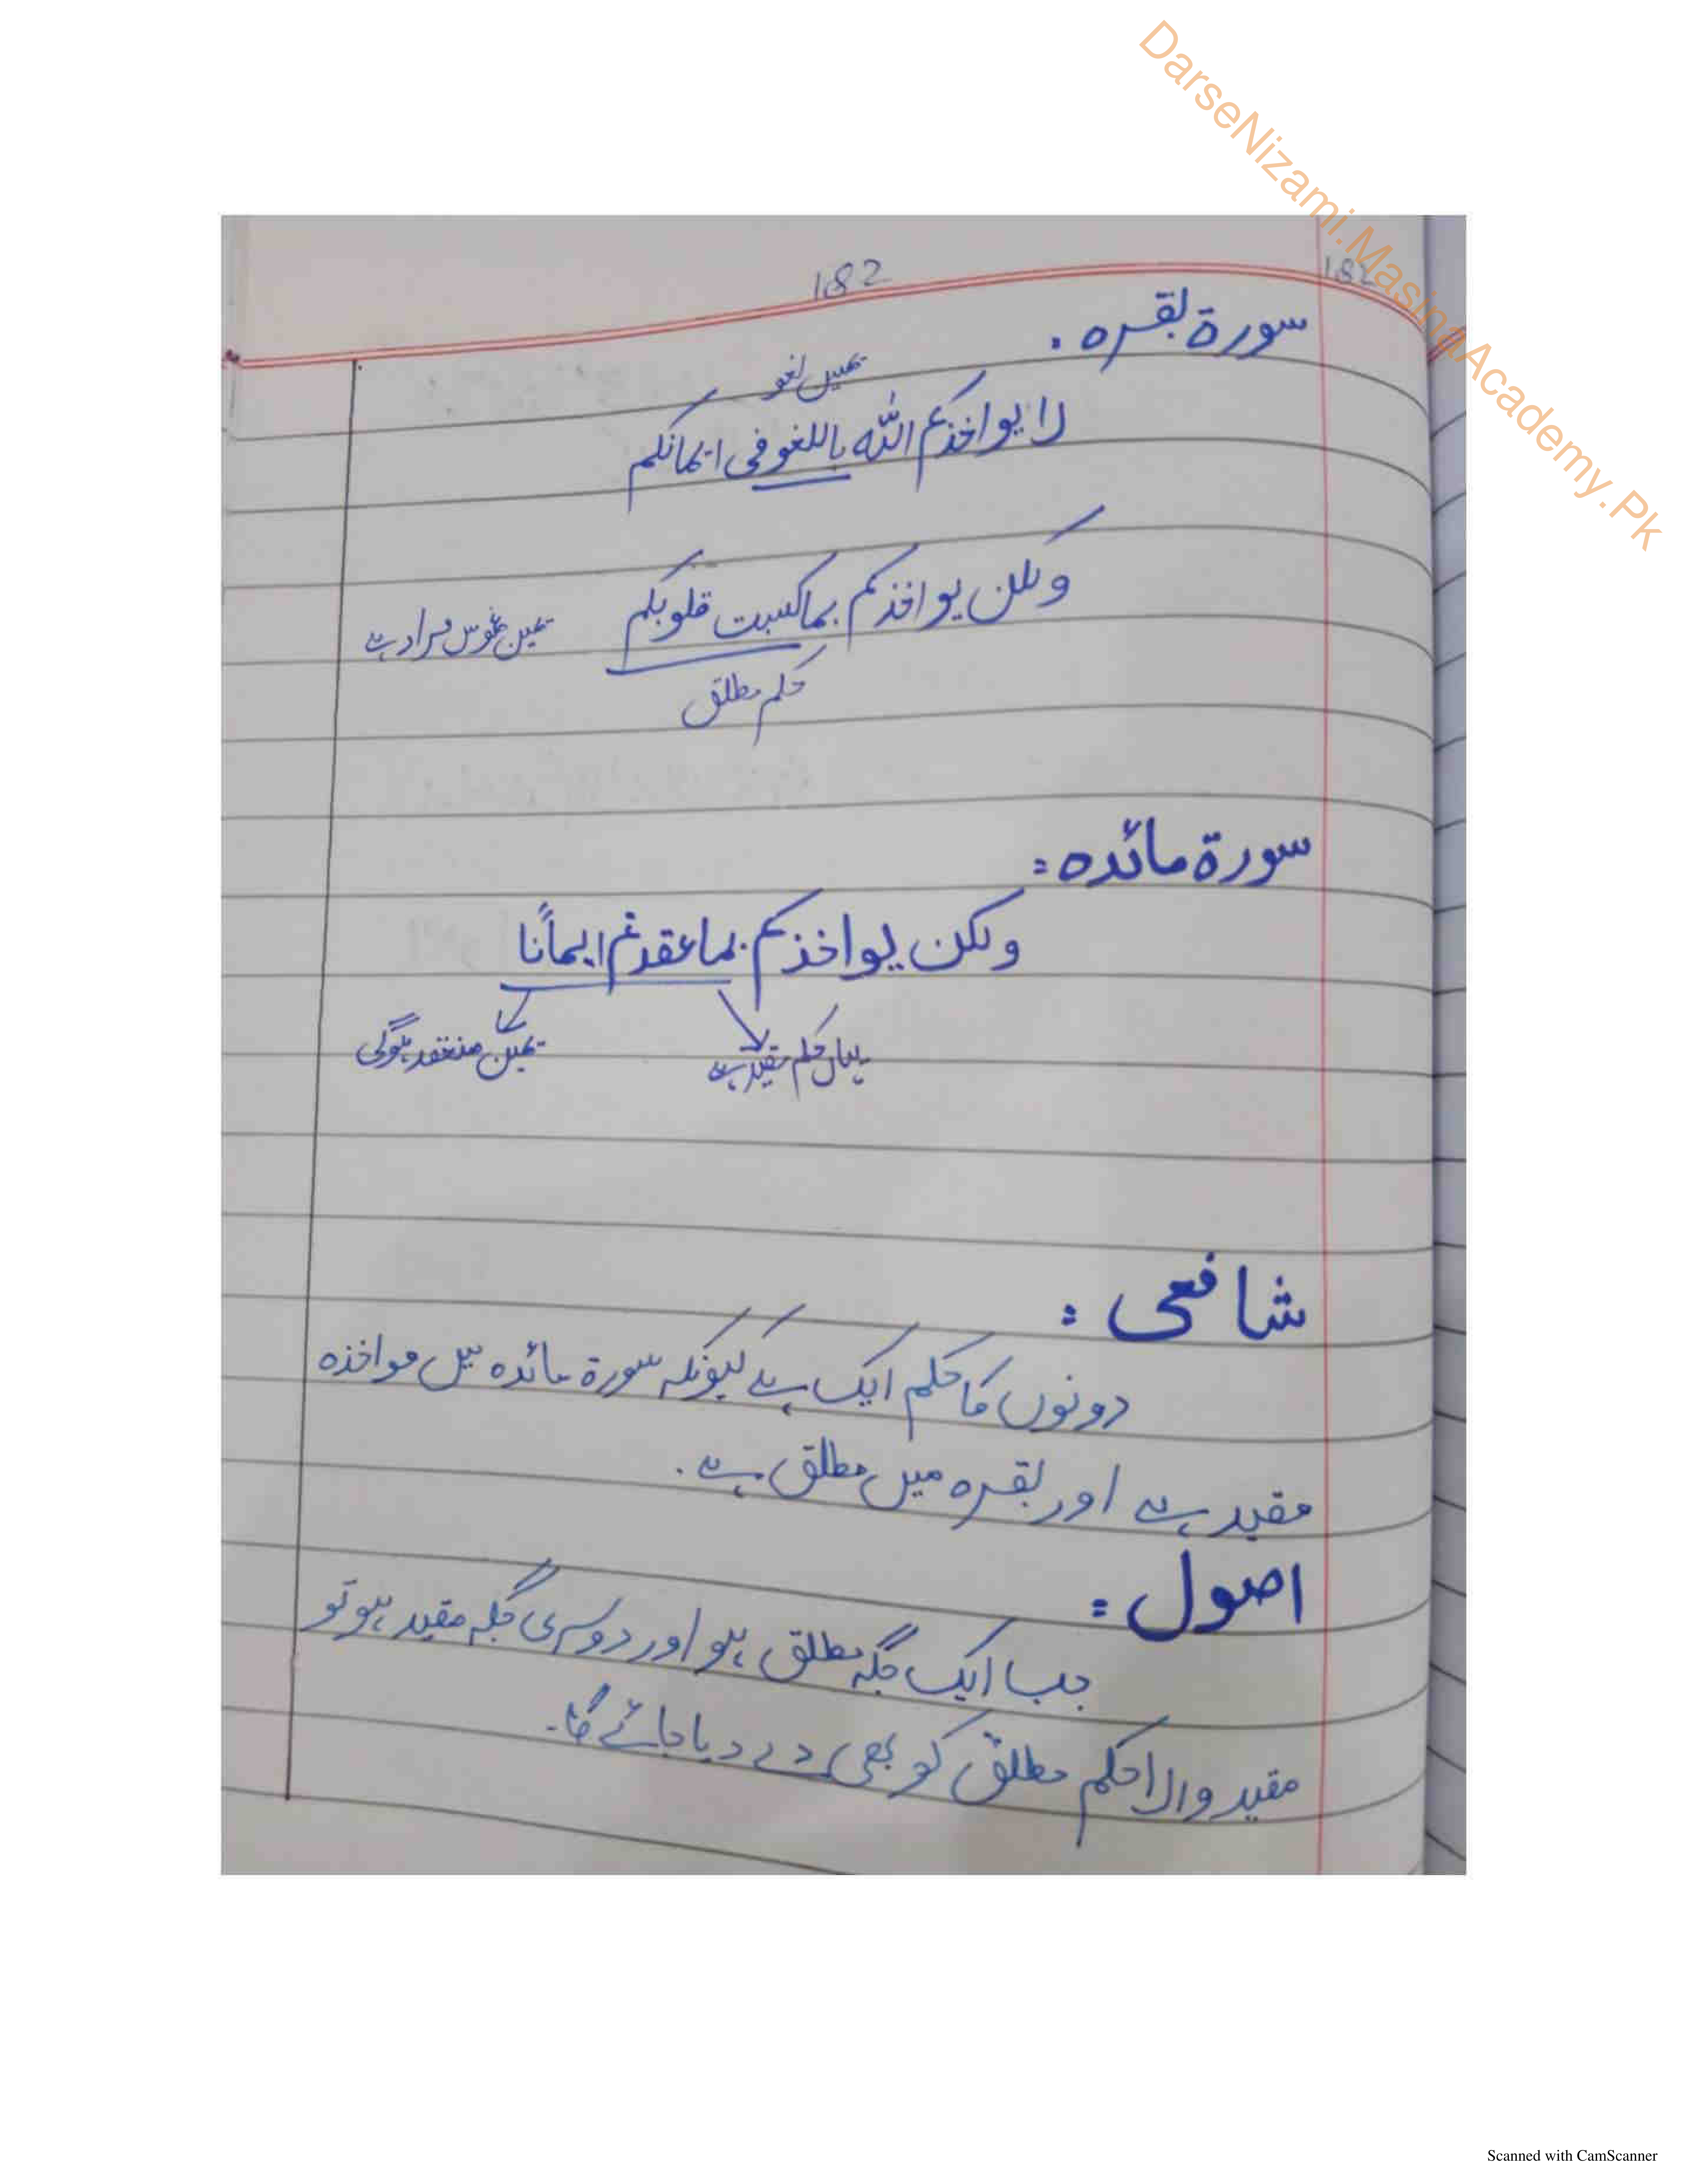 DarseNizami.MasihaAcademy.Pk
182
182
سورۃ بقرہ :
یمین لغو
لا یواخذکم اللہ باللغو فی ایمانکم
ولکن یواخذکم بما کسبت قلوبکم
یمین غموس مراد ہے
حکم مطلق
سورۃ مائدہ :
ولکن یواخذکم بما عقدتم ایمانًا
یہاں حکم مقید ہے
یمین منعقد ہوگی
شافعی :
دونوں کا حکم ایک ہے کیونکہ سورۃ مائدہ میں مواخذہ
مقید ہے اور بقرہ میں مطلق ہے .
اصول :
جب ایک جگہ مطلق ہو اور دوسری جگہ مقید ہو تو
مقید والا حکم مطلق کو بھی دے دیا جائے گا۔
Scanned with CamScanner